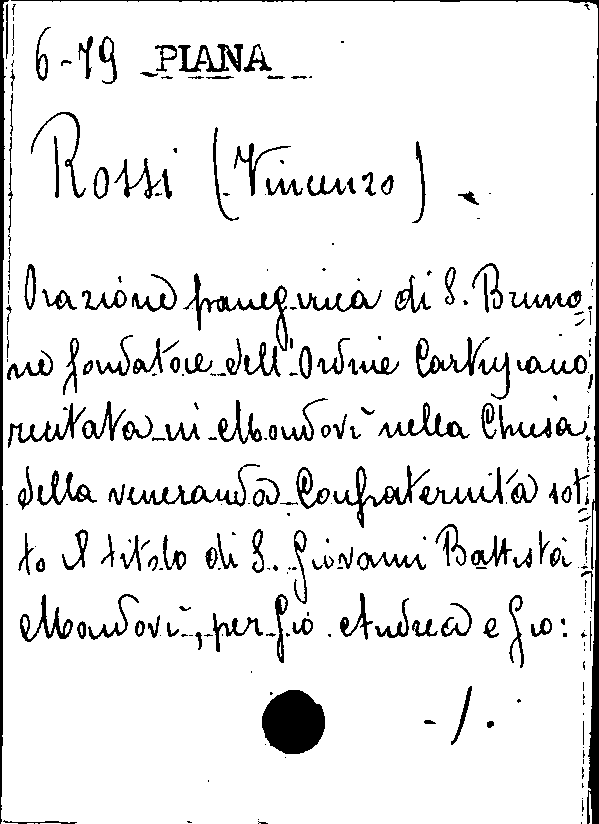 6-79 PIANA
Rossi (Vincenzo).
Orazione panegirica di S. Bruno=
ne fondatore dell'Ordine Cartusiano,
recitata in Mondovì nella Chiesa
della veneranda Confraternita sot=
to il titolo di S. Giovanni Battista
Mondovì, per Gio. Andrea e Gio:
-/.